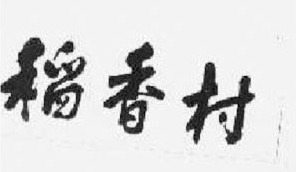 稻香村